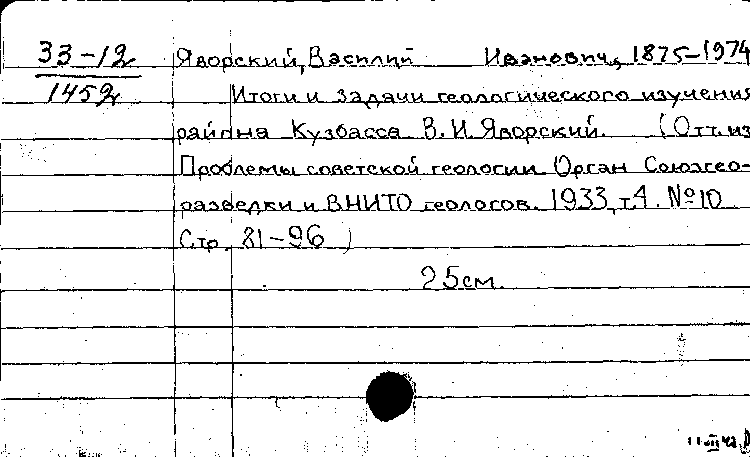 33-12
1452
Яворский, Василий Иванович, 1875-1974
Итоги и задачи геологического изучения
района Кузбасса В.И. Яворский. (Отт. из
Проблемы советской геологии Орган Союзгео-
разведки и ВНИТО геологов. 1933, т.4. №10
Стр. 81-96)
25см.